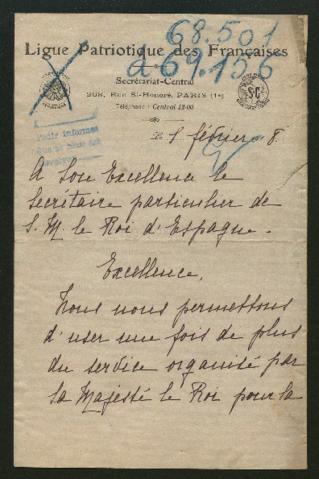 68.501
a 69.156
Ligue Patriotique des Françaises
Secrétariat-Central
368, Rue St-Honoré, PARIS (1er)
Téléphone: Central 12-00
SC
Pedir informes
février 8.
A Son Excellence le
Secrétaire particulier de
S. M. le Roi d'Espagne.
Excellence,
Nous nous permettons
d'user une fois de plus
du service organisé par
Sa Majesté le Roi pour la